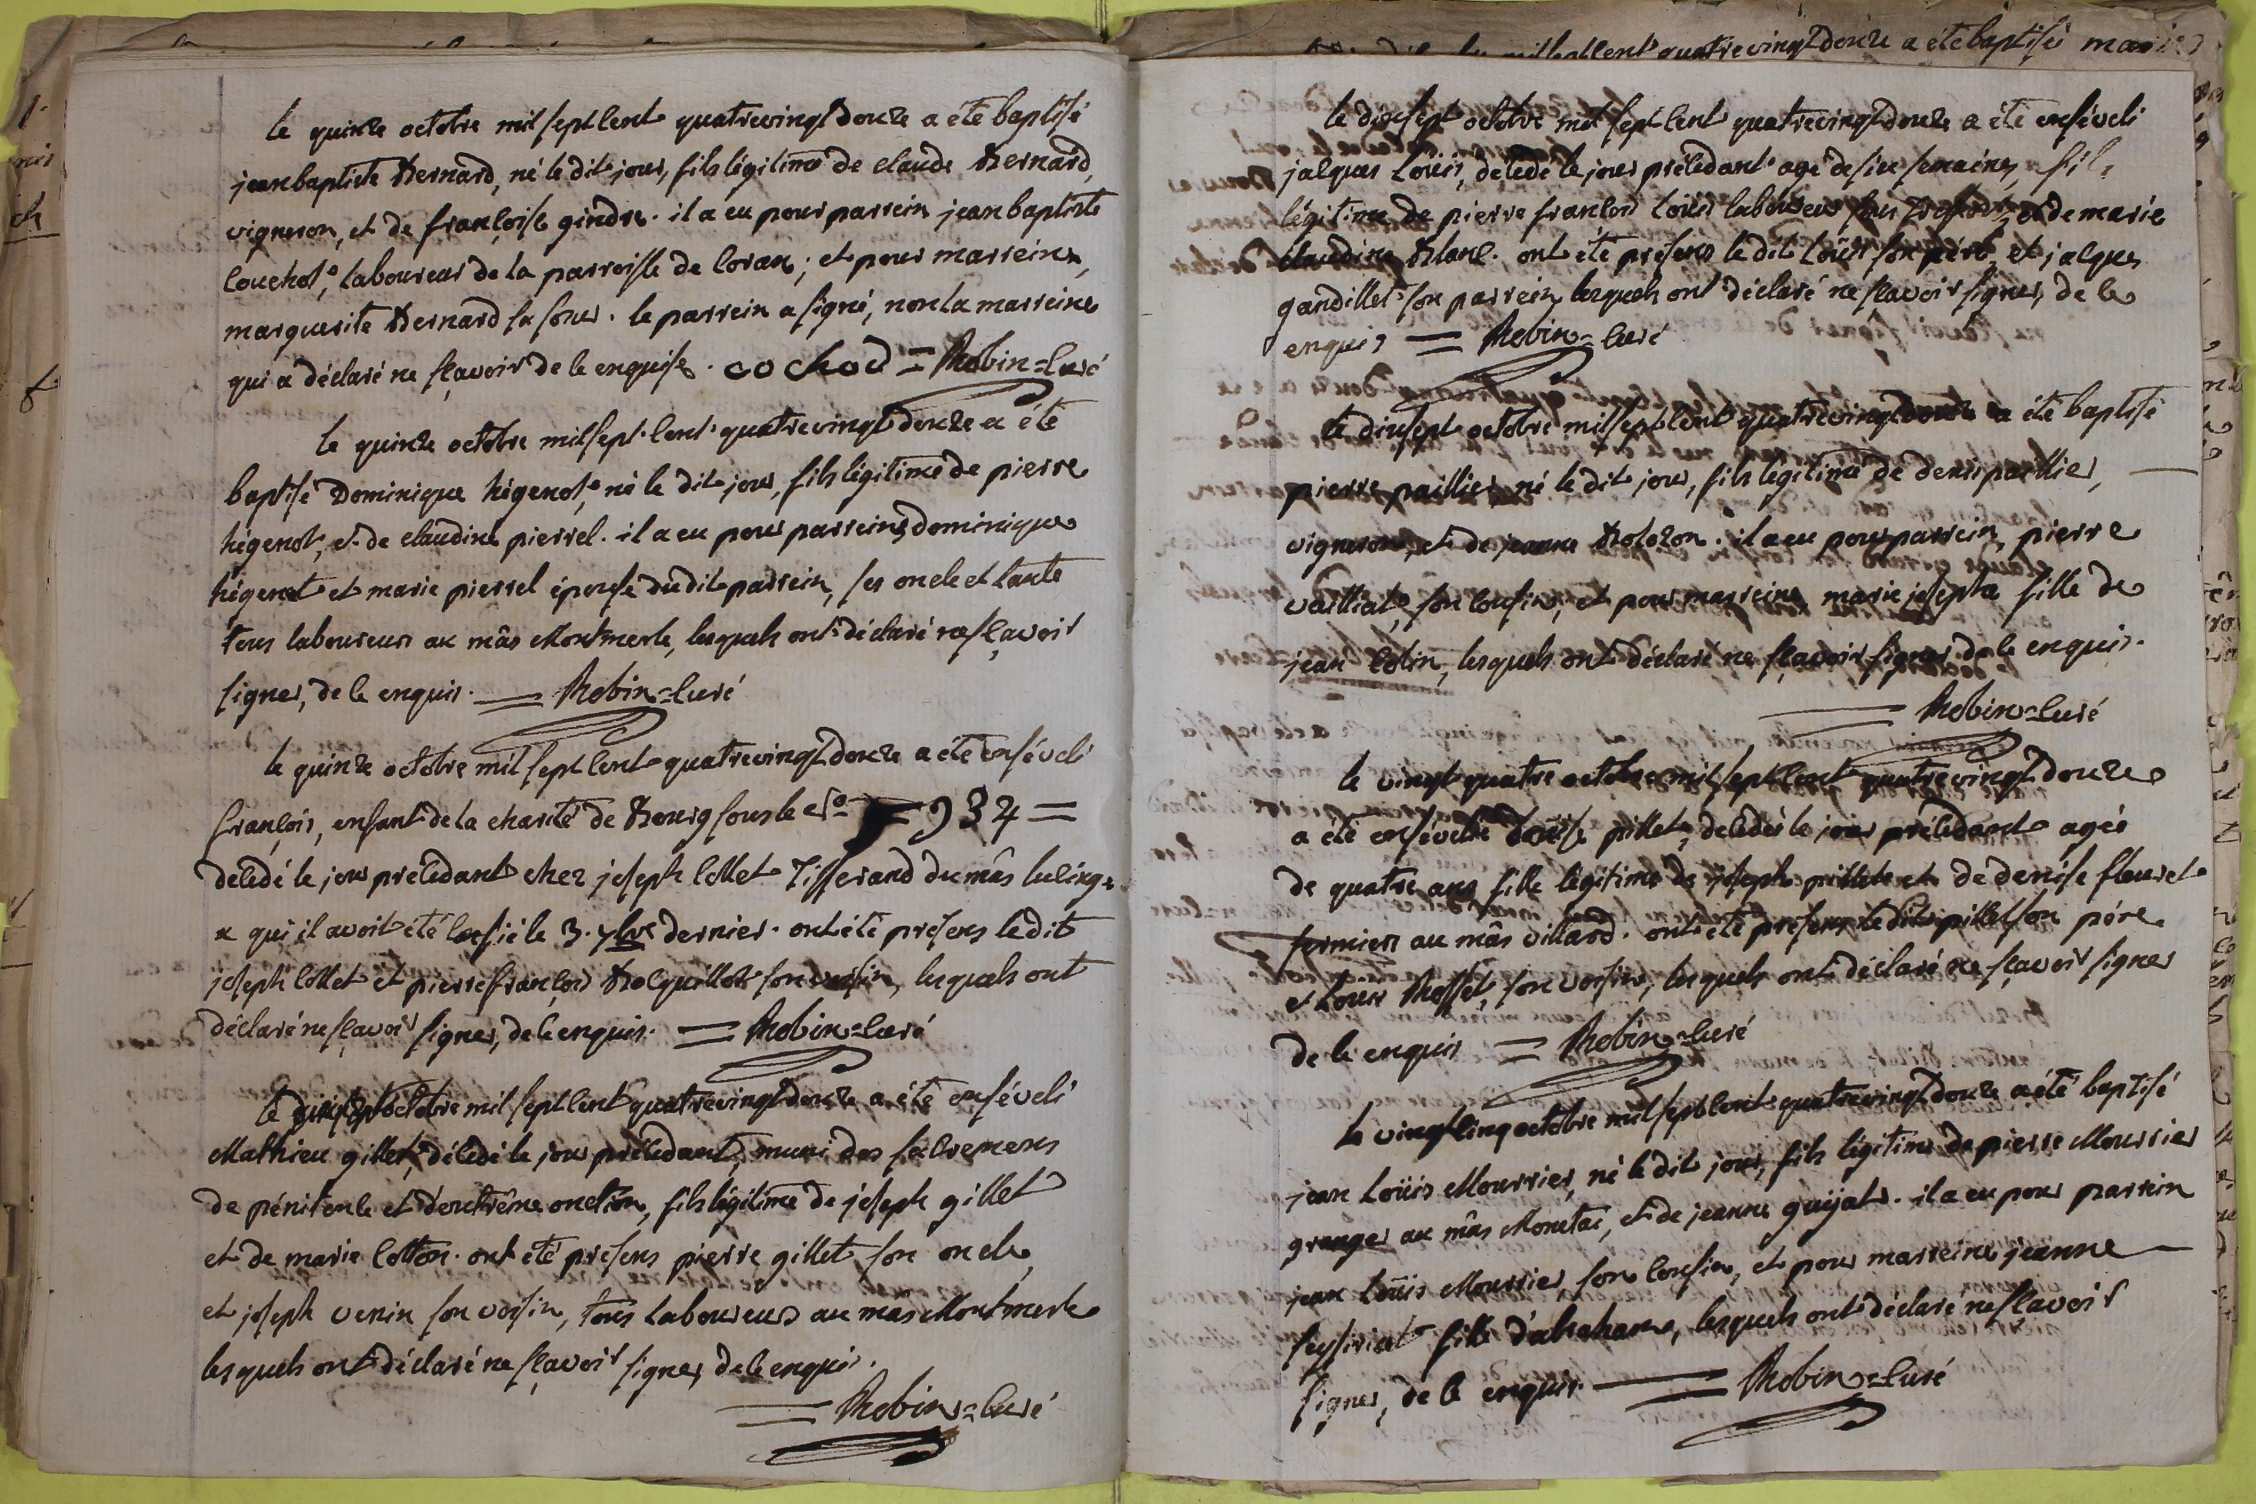 le quinze octobre mil sept cent quatrevingt douze a été baptisé
jean baptiste Bernard, né le dit jour, fils légitime de claude Bernard,
vigneron, et de françoise gindre. il a eu pour parrein jean baptiste
couchot, laboureur de la parroisse de Coran; et pour marreine,
marguerite Bernard sa sœur. le parrein a signé, non la marreine
qui a déclaré ne sçavoir de ce enquise. cochod = Robin = curé
le quinze octobre mil sept cent quatrevingt douze a été
baptisé Dominique hégenot, né le dit jour, fils légitime de pierre
hégenot, et de claudine pierrel. il a eu pour parreins dominique
hégenot et marie pierrel épouse du dit parrein, ses oncle et tante
tous laboureurs au mâs Montmerle, lesquels ont déclaré ne sçavoir
signer, de ce enquis. = Robin = curé
le quinze octobre mil sept cent quatrevingt douze a été enséveli
françois, enfant de la charité de Bourg sous le no = 934 =
décédé le jour précédant chez joseph collet Tisserand du mâs lucinge
a qui il avoit été confié le 3. 7bre dernier. ont été présens le dit
joseph collet et pierre françois Bolquillot son voisin, lesquels ont
déclaré ne sçavoir signer, de ce enquis. = Robin = curé
le octobre mil sept cent quatrevingt douze a été enséveli
Mathieu gillet, décédé le jour précédant, muni des sacremens
de pénitence et d'extrême onction, fils légitime de joseph gillet
et de marie cotton. ont été présens pierre gillet son oncle,
et joseph venin son voisin, tous laboureurs au mâs Montmerle
lesquels ont déclaré ne sçavoir signer, de ce enquis.
= Robin = curé
mil sept cent quatrevingt douze a été baptisé
le dix sept octobre mil sept cent quatrevingt douze a été enséveli
jacques Loüis, décédé le jour précédant agé de six semaines, fils
légitime de pierre françois Loüis laboureur et de marie
claudine Blanc. ont été présens le dit Loüis son père, et jacques
gandillet son parrein, lesquels ont déclaré ne sçavoir signer, de ce
enquis = Robin = curé
le dix sept octobre mil sept cent quatrevingt douze a été baptisé
pierre paillier né le dit jour, fils légitime de denis paillier,
vigneron, et de jeanne Bolozon. il a eu pour parrein, pierre
vailliat, son cousin, et pour marreine marie josepha fille de
jean colin, lesquels ont déclaré ne sçavoir signer de ce enquis.
= Robin = curé
le vingt quatre octobre mil sept cent quatrevingt douze
a été ensévelie pillet, décédée le jour précédant agée
de quatre ans fille légitime de joseph pillet et de denise fleuret
fermiers au mâs villard. ont été présens le dit pillet son père
et Louis Rosset, son voisin, lesquels ont déclaré ne sçavoir signer
de ce enquis = Robin = curé
le vingt cinq octobre mil sept cent quatrevingt douze a été baptisé
jean Loüis Mourrier, né le dit jour, fils légitime de pierre Mourrier
granger au mâs et de jeanne guijat. il a eu pour parrein
jean Loüis Mourrier, son cousin, et pour marreine jeanne
fille d'abraham, lesquels ont déclaré ne sçavoir
signer, de ce enquis. = Robin = curé